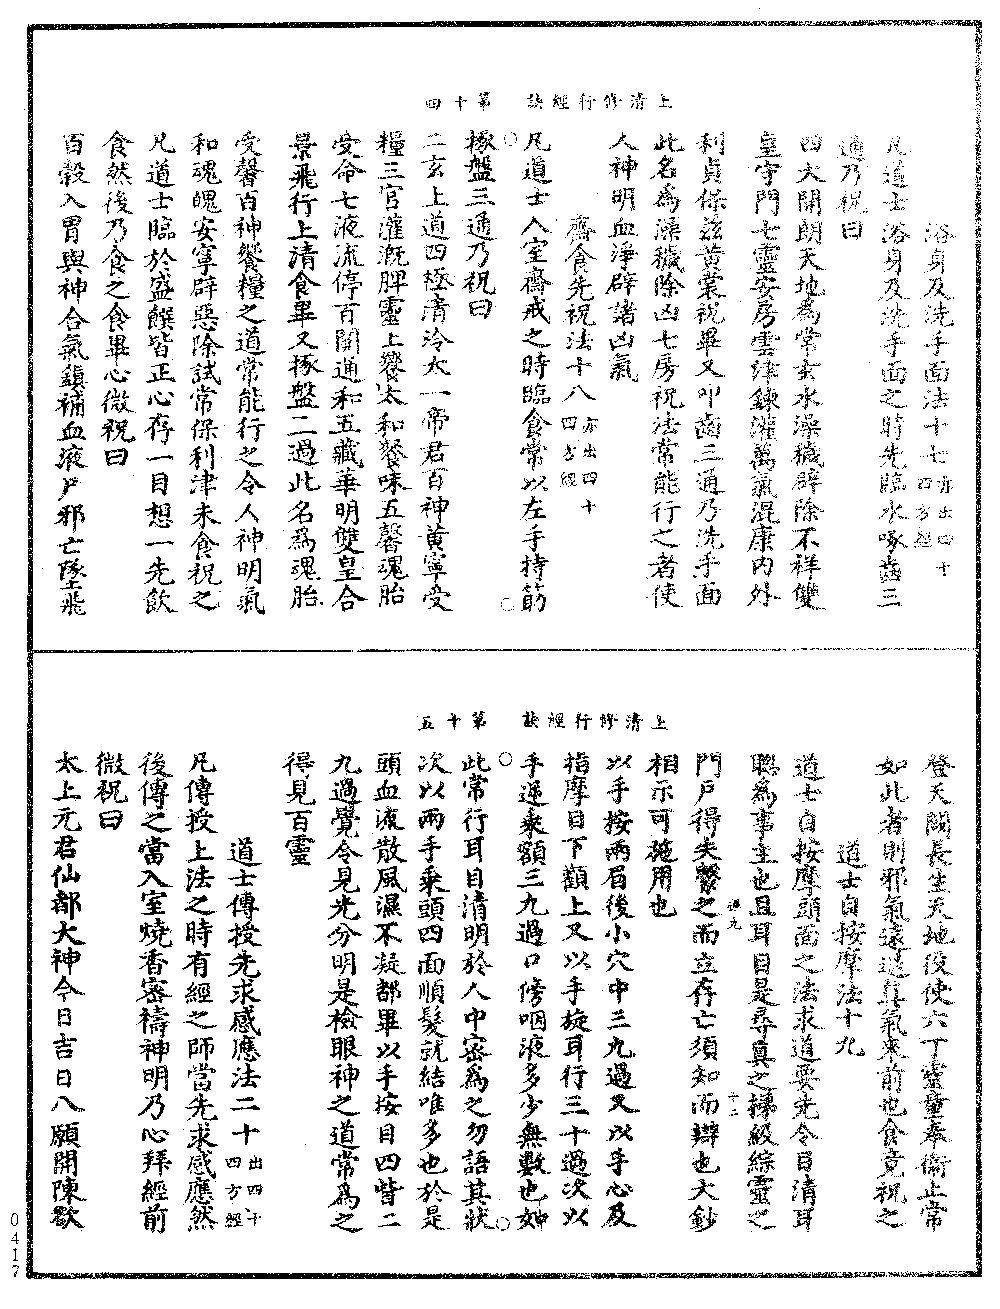 上清修行經訣　第十四
浴身及洗手面法十七亦出四十四方經
凡道士浴身及洗手面之時先臨水啄齒三
通乃祝曰
四大開朗天地為常玄水澡穢辟除不祥雙
皇守門七靈安房雲津鍊灌萬氣混康內外
利貞保茲黃裳祝畢又叩齒三通乃洗手面
此名為澡穢除凶七房祝法常能行之者使
人神明血淨辟諸凶氣
齋食先祝法十八亦出四十四方經
凡道士入室齋戒之時臨食常以左手持筯
琢盤三通乃祝曰
二玄上道四極清泠太一帝君百神黃寧受
糧三官灌溉脾靈上饗太和餐味五馨魂胎
受命七液流停百關通和五藏華明雙皇合
景飛行上清食畢又琢盤二過此名為魂胎
受馨百神饗糧之道常能行之令人神明氣
和魂魄安寧辟惡除試常保利津未食祝之
凡道士臨於盛饌皆正心存一目想一先飲
食然後乃食之食畢心微祝曰
百穀入胃與神合氣鎮補血液尸邪亡墜飛
上清修行經訣　第十五
登天關長生天地役使六丁靈童奉衞止常
如此者則邪氣遠遁真氣來前也食竟祝之
道士自按摩法十九
道士自按摩頭面之法求道要先令目清耳
聰為事主也且耳目是尋真之梯級綜靈之
門戶得失繫之而立存亡須知而辯也大鈔
相示可施用也
以手按兩眉後小穴中三九過又以手心及
指摩目下顴上又以手旋耳行三十過次以
手逆乘額三九過口傍咽液多少無數也如
此常行耳目清明於人中密為之勿語其狀
次以兩手乘頭四面順髮就結唯多也於是
頭血液散風濕不凝都畢以手按目四眥二
九過覺令見光分明是檢眼神之道常為之
得見百靈
道士傳授先求感應法二十出四十四方經
凡傳授上法之時有經之師當先求感應然
後傳之當入室燒香密禱神明乃心拜經前
微祝曰
太上元君仙都大神今日吉日八願開陳歘
0417